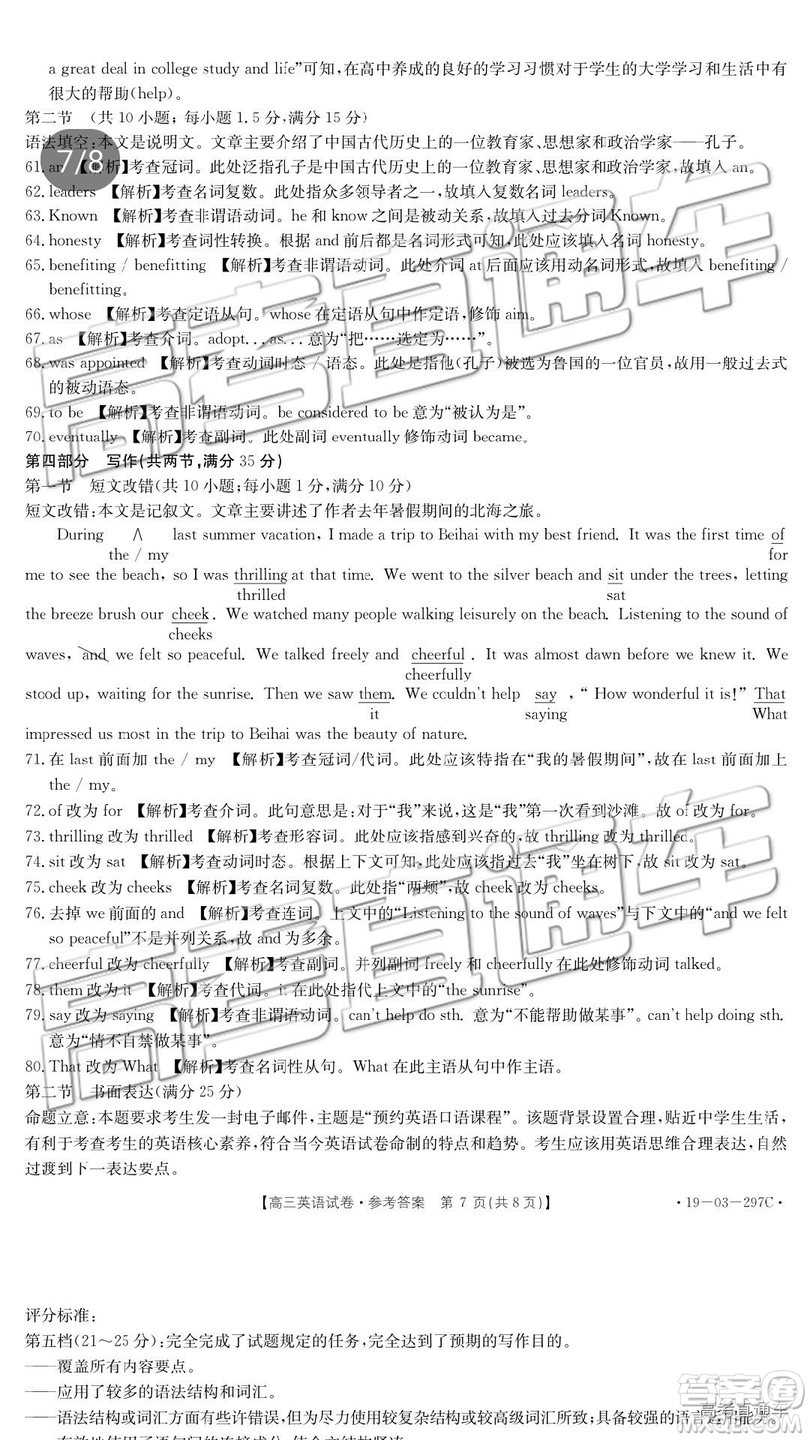 a great deal in college study and life”可知,在高中养成的良好的学习习惯对于学生的大学学习和生活中有
很大的帮助(help)。
第二节 (共 10 小题;每小题 1.5 分,满分 15 分)
语法填空:本文是说明文。文章主要介绍了中国古代历史上的一位教育家、思想家和政治学家——孔子。
7/8
61. an 【解析】考查冠词。此处泛指孔子是中国古代历史上的一位教育家、思想家和政治学家,故填入 an。
62. leaders 【解析】考查名词复数。此处指众多领导者之一,故填入复数名词 leaders。
63. Known 【解析】考查非谓语动词。he 和 know 之间是被动关系,故填入过去分词 Known。
64. honesty 【解析】考查词性转换。根据 and 前后都是名词形式可知,此处应该填入名词 honesty。
65. benefiting / benefitting 【解析】考查非谓语动词。此处介词 at 后面应该用动名词形式,故填入 benefiting /
benefitting。
66. whose 【解析】考查定语从句。whose 在定语从句中作定语,修饰 aim。
67. as 【解析】考查介词。adopt...as... 意为“把……选定为……”。
68. was appointed 【解析】考查动词时态 / 语态。此处是指他(孔子)被选为鲁国的一位官员,故用一般过去式
的被动语态。
69. to be 【解析】考查非谓语动词。be considered to be 意为“被认为是”。
70. eventually 【解析】考查副词。此处副词 eventually 修饰动词 became。
第四部分 写作(共两节,满分 35 分)
第一节 短文改错(共 10 小题;每小题 1 分,满分 10 分)
短文改错:本文是记叙文。文章主要讲述了作者去年暑假期间的北海之旅。
During ∧ last summer vacation, I made a trip to Beihai with my best friend. It was the first time of
the / my for
me to see the beach, so I was thrilling at that time. We went to the silver beach and sit under the trees, letting
thrilled sat
the breeze brush our cheek. We watched many people walking leisurely on the beach. Listening to the sound of
cheeks
waves, and we felt so peaceful. We talked freely and cheerful. It was almost dawn before we knew it. We
cheerfully
stood up, waiting for the sunrise. Then we saw them. We couldn't help say, “How wonderful it is!” That
it saying What
impressed us most in the trip to Beihai was the beauty of nature.
71. 在 last 前面加 the / my 【解析】考查冠词/代词。此处应该特指在“我的暑假期间”,故在 last 前面加上
the / my。
72. of 改为 for 【解析】考查介词。此句意思是:对于“我”来说,这是“我”第一次看到沙滩。故 of 改为 for。
73. thrilling 改为 thrilled 【解析】考查形容词。此处应该指感到兴奋的,故 thrilling 改为 thrilled。
74. sit 改为 sat 【解析】考查动词时态。根据上下文可知,此处应该指过去“我”坐在树下,故 sit 改为 sat。
75. cheek 改为 cheeks 【解析】考查名词复数。此处指“两颊”,故 cheek 改为 cheeks。
76. 去掉 we 前面的 and 【解析】考查连词。上文中的“Listening to the sound of waves”与下文中的“and we felt
so peaceful”不是并列关系,故 and 为多余。
77. cheerful 改为 cheerfully 【解析】考查副词。并列副词 freely 和 cheerfully 在此处修饰动词 talked。
78. them 改为 it 【解析】考查代词。it 在此处指代上文中的“the sunrise”。
79. say 改为 saying 【解析】考查非谓语动词。can't help do sth. 意为“不能帮助做某事”。can't help doing sth.
意为“情不自禁做某事”。
80. That 改为 What 【解析】考查名词性从句。What 在此主语从句中作主语。
第二节 书面表达(满分 25 分)
命题立意:本题要求考生发一封电子邮件,主题是“预约英语口语课程”。该题背景设置合理,贴近中学生生活,
有利于考查考生的英语核心素养,符合当今英语试卷命制的特点和趋势。考生应该用英语思维合理表达,自然
过渡到下一表达要点。
【高三英语试卷·参考答案 第 7 页(共 8 页)】 ·19-03-297C·
评分标准:
第五档(21~25 分):完全完成了试题规定的任务,完全达到了预期的写作目的。
——覆盖所有内容要点。
——应用了较多的语法结构和词汇。
——语法结构或词汇方面有些许错误,但为尽力使用较复杂结构或较高级词汇所致;具备较强的语言运用能力。
高考直通车
高考直通车
答案圈
高考直通车